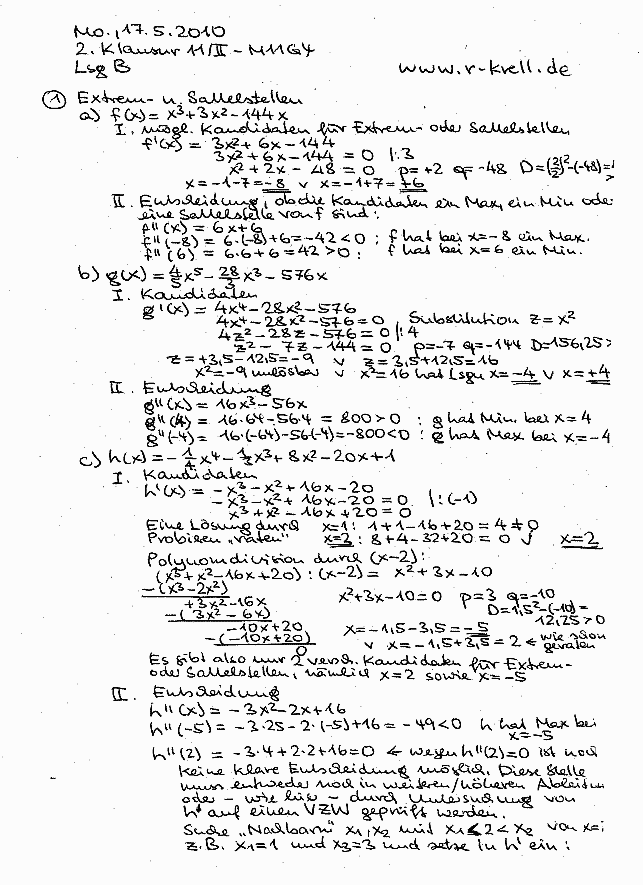 Mo., 17.5.2010
2. Klausur 11/II – M11G4
Lsg B www.r-krell.de
① Extrem- u. Sattelstellen
a) f(x) = x³+3x²-144x
I. mögl. Kandidaten für Extrem- oder Sattelstellen
f'(x) = 3x²+6x-144
3x²+6x-144 = 0 |:3
x²+2x-48 = 0 p=+2 q=-48 D=(2/2)²-(-48)=
x=-1-7=-8 ∨ x=-1+7=+6
II. Entscheidung, ob die Kandidaten ein Max, ein Min oder
eine Sattelstelle von f sind:
f''(x) = 6x+6
f''(-8) = 6·(-8)+6=-42<0 ; f hat bei x=-8 ein Max.
f''(6) = 6·6+6=42>0 ; f hat bei x=6 ein Min.
b) g(x) = 4/5x⁵-28/3x³-576x
I. Kandidaten
g'(x) = 4x⁴-28x²-576
4x⁴-28x²-576=0 , Substitution z=x²
4z²-28z-576=0 |:4
z²-7z-144=0 p=-7 q=-144 D=156,25>
z=+3,5-12,5=-9 ∨ z=3,5+12,5=16
x²=-9 unlösbar ∨ x²=16 hat Lsgn x=-4 ∨ x=+4
II. Entscheidung
g''(x) = 16x³-56x
g''(4) = 16·64-56·4 = 800>0 : g hat Min. bei x=4
g''(-4) = 16·(-64)-56(-4)=-800<0 : g hat Max bei x=-4
c) h(x)=-1/4x⁴-1/3x³+8x²-20x+1
I. Kandidaten
h'(x) = -x³-x²+16x-20
-x³-x²+16x-20=0 |:(-1)
x³+x²-16x+20=0
Eine Lösung durch x=1: 1+1-16+20=4≠0
Probieren „raten" x=2: 8+4-32+20=0 √ x=2
Polynomdivision durch (x-2):
(x³+x²-16x+20):(x-2)= x²+3x-10
-(x³-2x²)
+3x²-16x x²+3x-10=0 p=3 q=-10
-(3x²-6x) D=1,5²-(-10)=
-10x+20 12,25>0
-(-10x+20) x=-1,5-3,5=-5
0 ∨ x=-1,5+3,5=2 ← wie schon geraten
Es gibt also nur 2 versch. Kandidaten für Extrem-
oder Sattelstellen, nämlich x=2 sowie x=-5
II. Entscheidung
h''(x) = -3x²-2x+16
h''(-5) = -3·25-2·(-5)+16=-49<0 h hat Max bei
x=-5
h''(2) = -3·4+2·2+16=0 ← wegen h''(2)=0 ist noch
keine klare Entscheidung möglich. Diese Stelle
muss entweder noch in weiteren/höheren Ableitun
oder – wie hier – durch Untersuchung von
h' auf einen VZW geprüft werden.
Suche „Nachbarn" x₁,x₂ mit x₁<2<x₂ von x=
z.B. x₁=1 und x₂=3 und setze in h' ein: